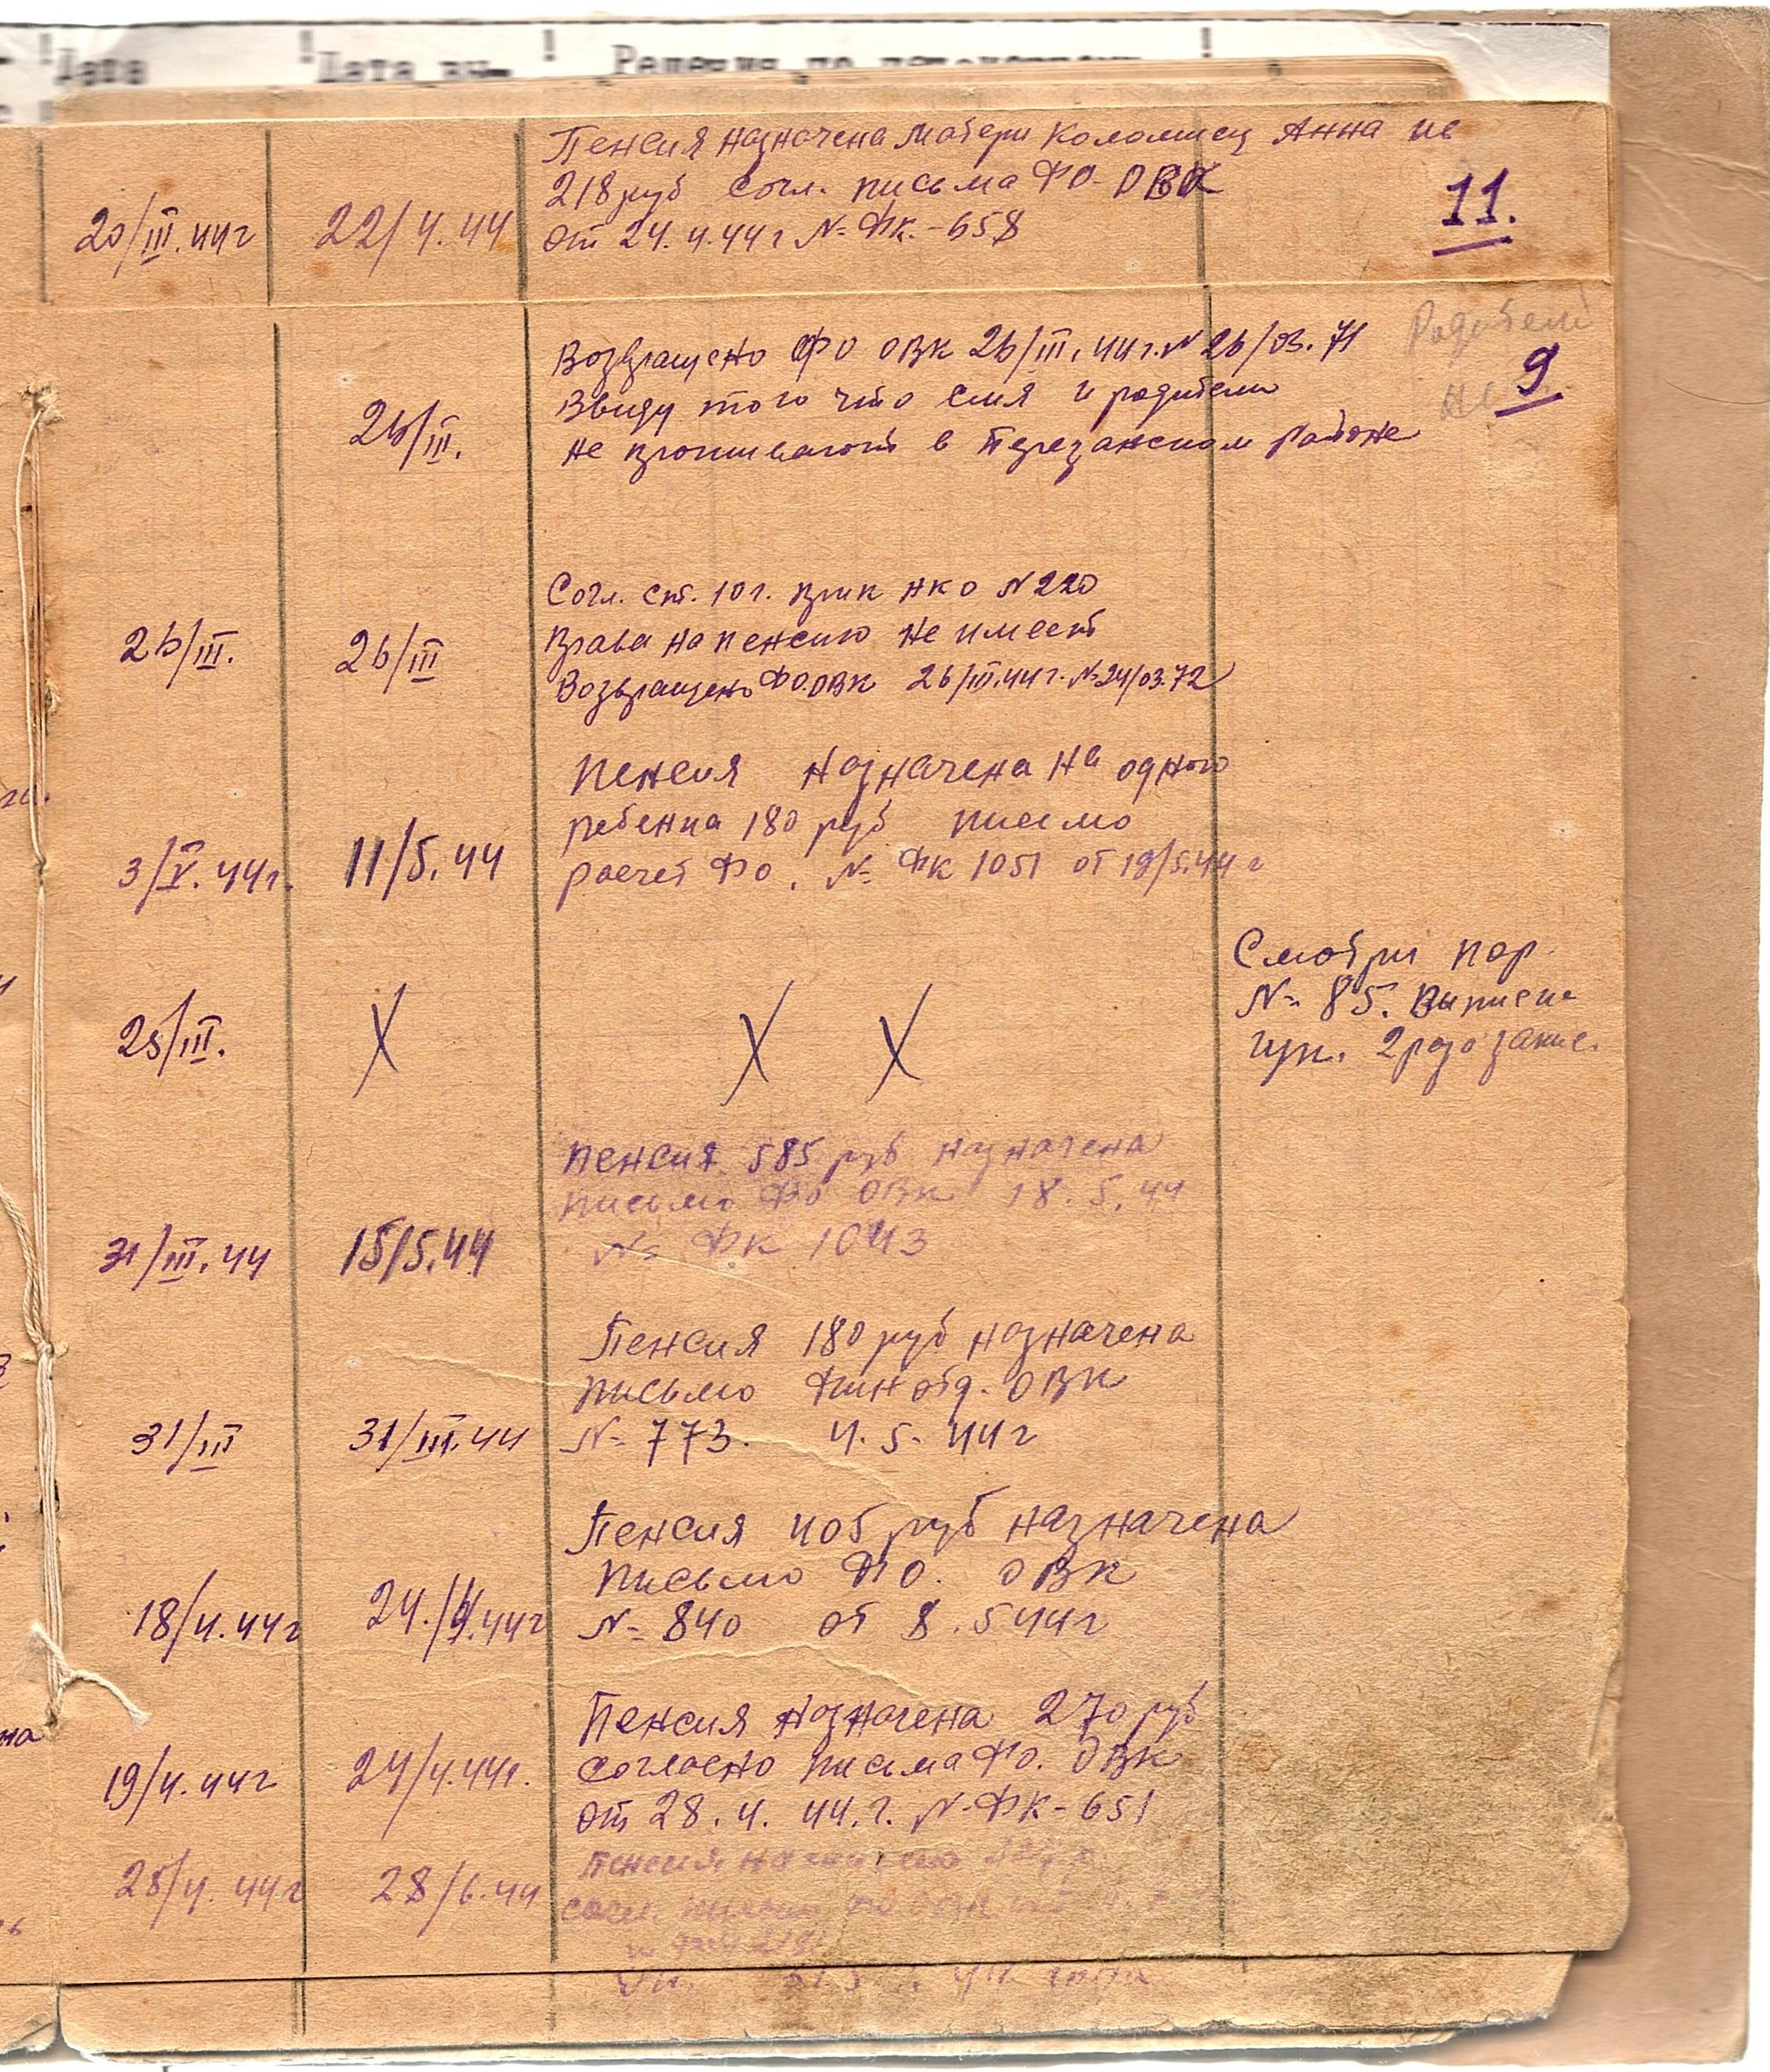 Дата
Дата вы-
Решения по
Пенсия назначена матери Коломиец Анна
218 руб согл. письма ФО-ОВК
20/III.44г
22/4.44
от 24.4.44г № ФК.-658
11.
Родители
не
9
Возвращено ФО ОВК 26/III.44г. № 26/03.71
26/III.
Ввиду того что семя и родители
не проживают в Терезанском районе
Согл. ст. 10 г. прик НКО № 220
26/III.
26/III
Права на пенсию не имеет
Возвращено ФО.ОВК 26/III.44г. № 24/03.72
Пенсия назначена на одного
ребенка 180 руб письмо
3/V.44г.
11/5.44
расчет ФО. № ФК 1051 от 19/5.44г
Смотри пор.
№ 85.
25/III.
X
X X
Пенсия 585 руб назначена
письмо ФО ОВК 18.5.44
31/III.44
15/5.44
№ ФК 1043
Пенсия 180 руб назначена
письмо Финотд. ОВК
31/III
31/III.44
№ 773. 4.5.44г
Пенсия 405 руб назначена
письмо ФО. ОВК
18/4.44г
24./4.44г
№ 840 от 8.5 44г
Пенсия назначена 270 руб
19/4.44г
24/4.44г.
согласно письма ФО. ОВК
от 28.4.44.г. № ФК-651
25/4.44г
28/6.44
Пенсия
согл. письма ФО ОВК